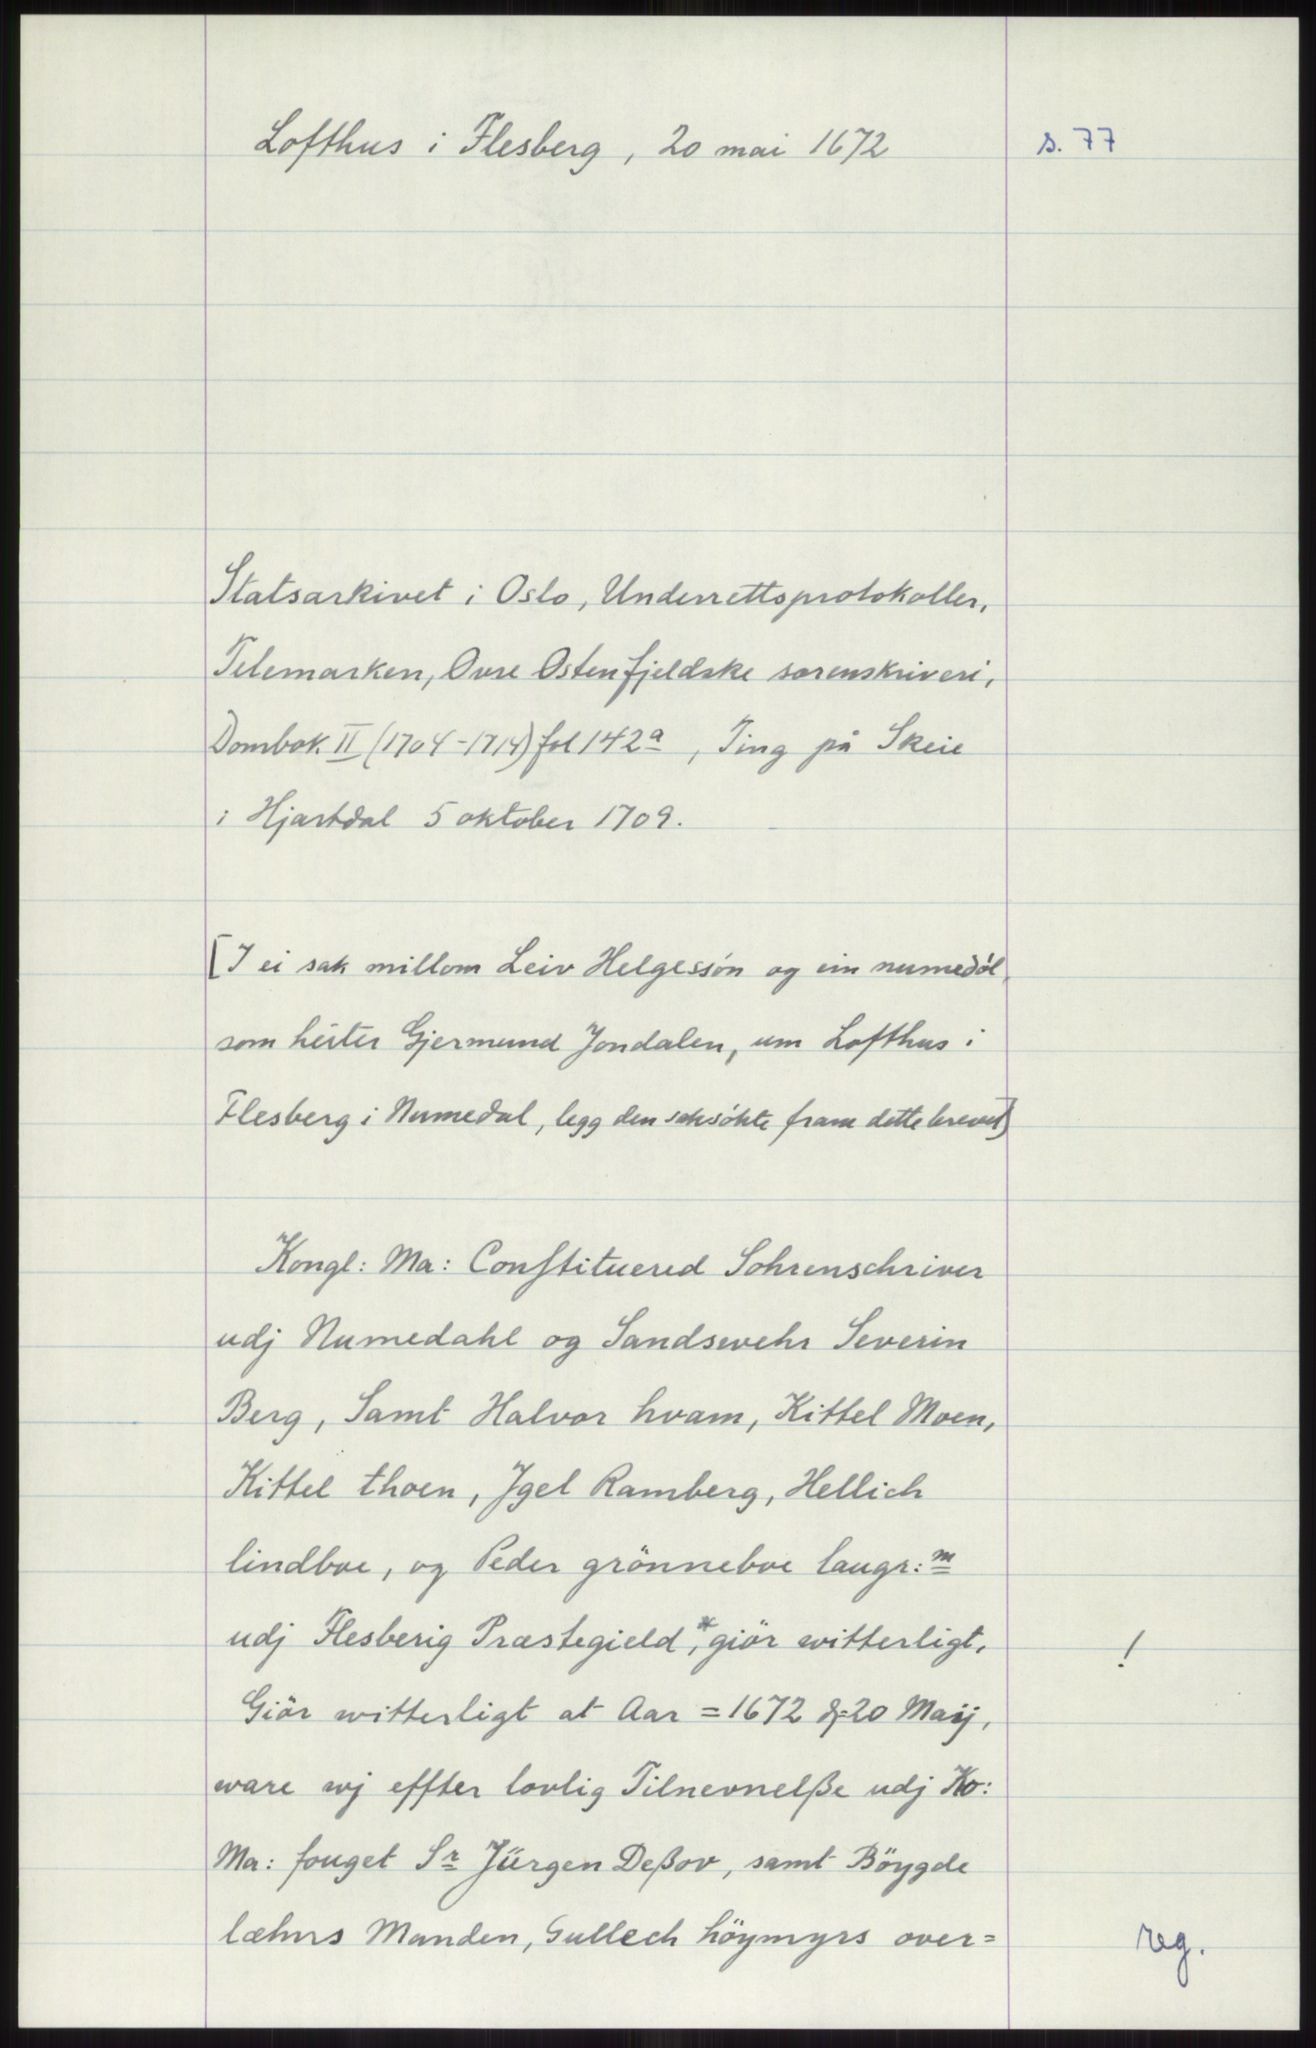 Lofthus i Flesberg, 20 mai 1672
s. 77
Statsarkivet i Oslo, Underrettsprotokoller,
Telemarken, Øvre Østenfjeldske sorenskriveri,
Dombok II (1704-1714) fol 142a, Ting på Skeie
i Hjartdal 5 oktober 1709.
[I ei sak millom Leiv Helgessón og ein numedól
som heiter Gjermund Jondalen, um Lofthus i
Flesberg i Numedal, legg den saksókte fram dette brevet]
Kongl: Ma: Constituered Sohrenschriver
udj Numedahl og Sandswehr Severin
Berg, Samt Halvor hvam, Kittel Moen,
Kittel thoen, Jgel Ramberg, Hellich
lindboe, og Peder grönneboe laugr:m
udj Flesberig Præstegield,* giör witterligt,
!
Giör witterligt at Aar = 1672 d=20 Maij,
ware wj effter lovlig Tilnevnelße udj Ko:
Ma: fouget Sr Jürgen Deßov, samt Böygde
læhns Manden, Gullech höymyrs over=
reg.